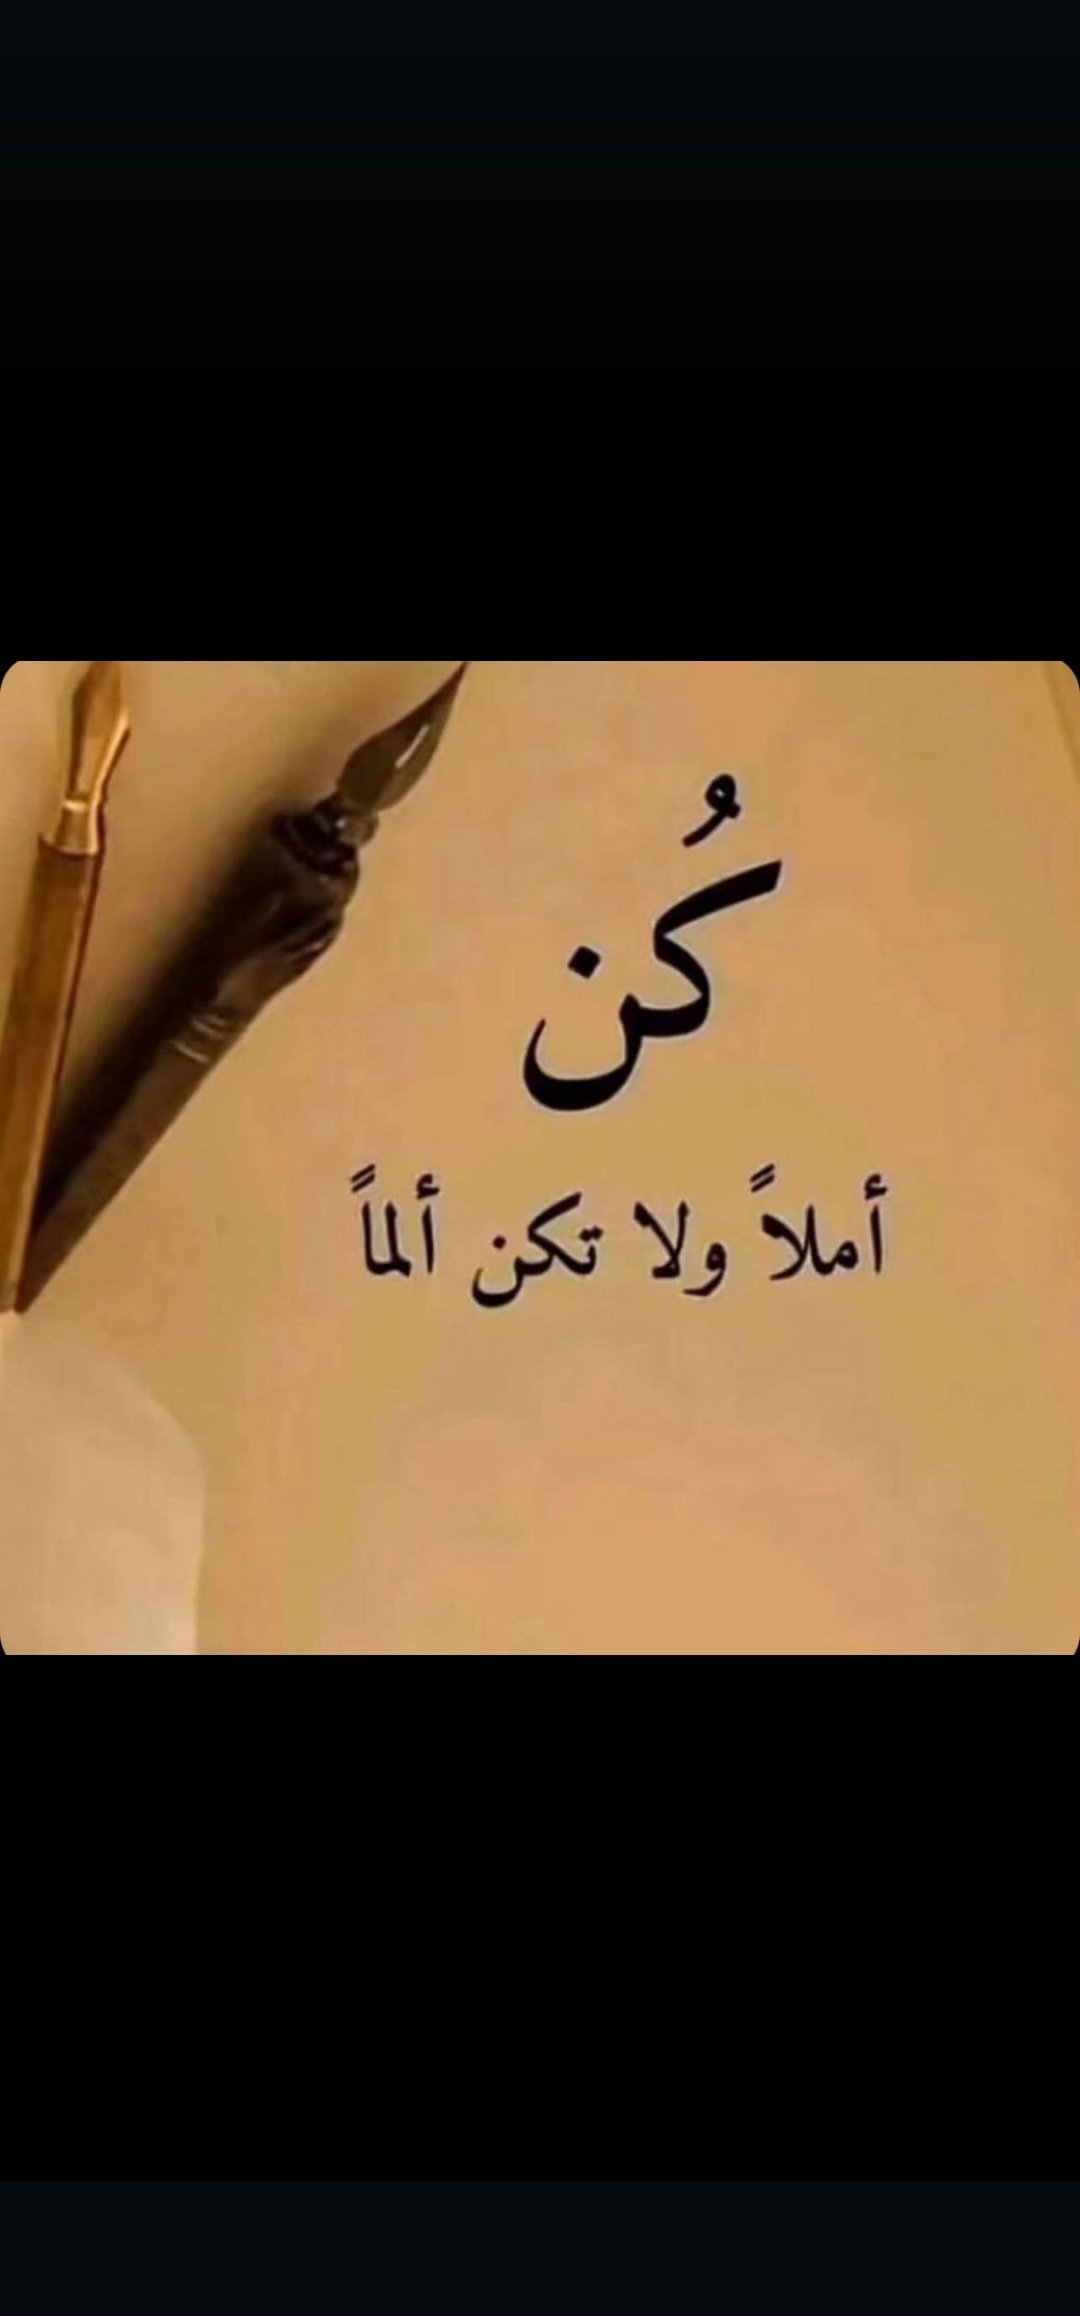 كُن
أملاً ولا تكن ألماً